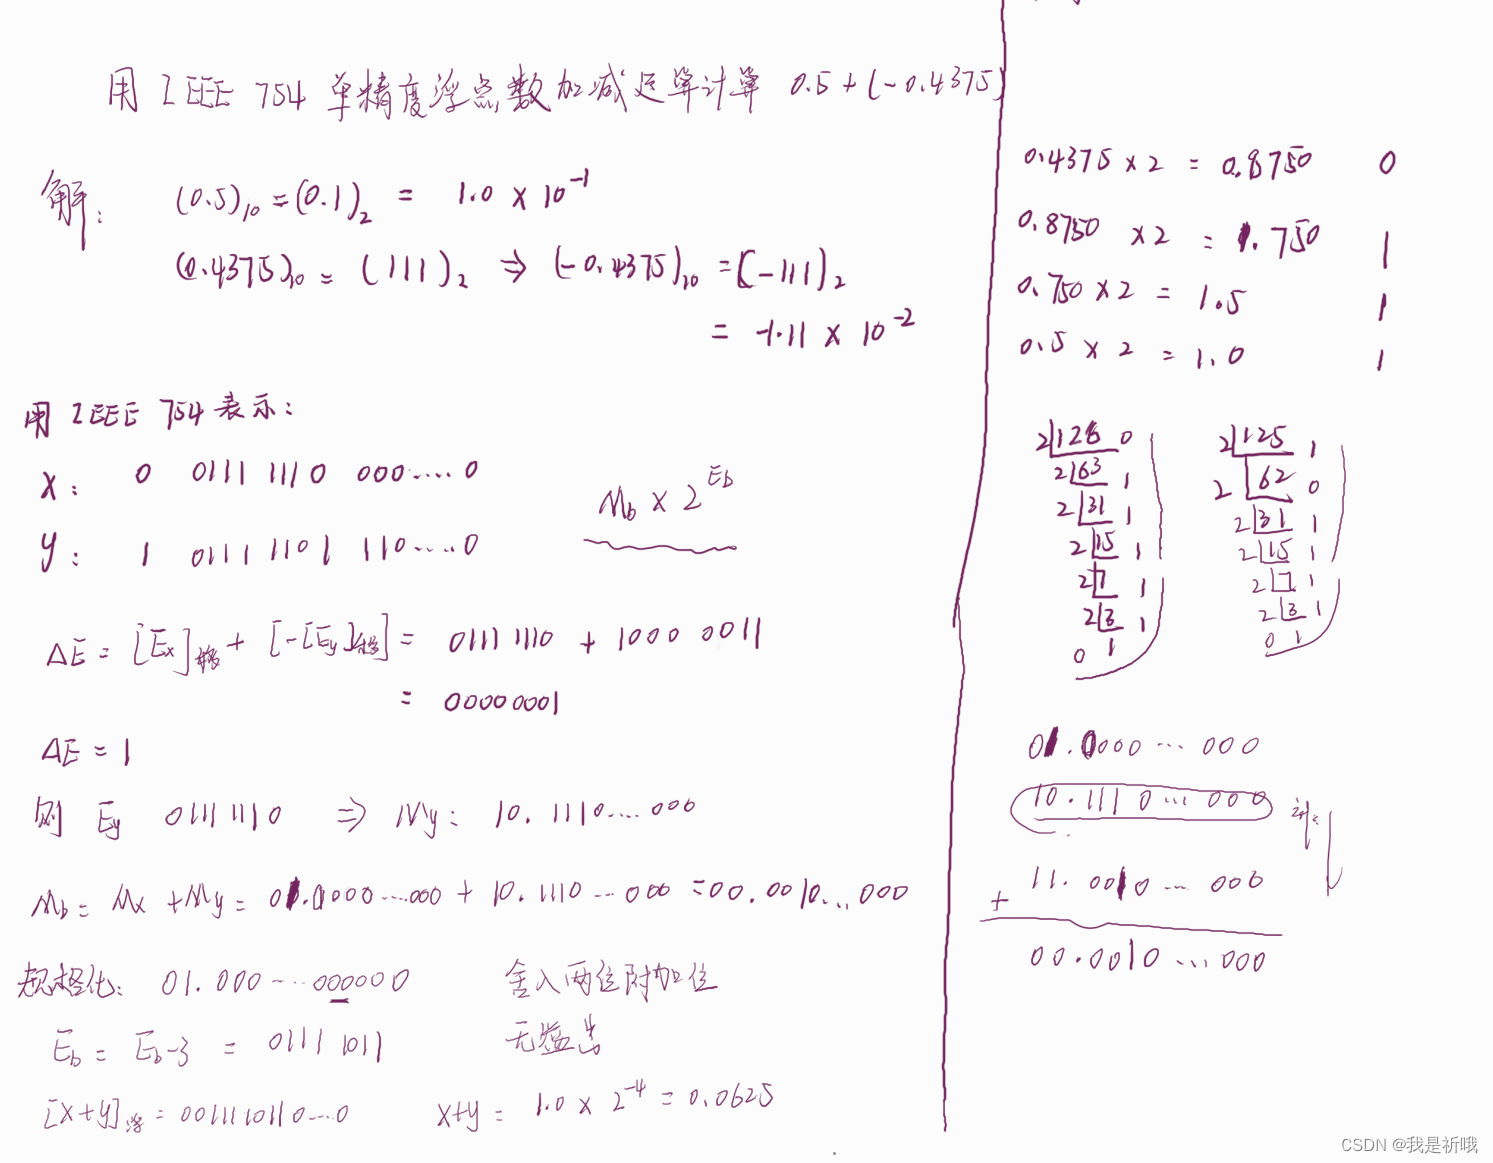 用 IEEE 754 单精度浮点数加减运算计算 0.5+(-0.4375)
解: (0.5)₁₀=(0.1)₂ = 1.0 × 10⁻¹
(0.4375)₁₀ = (111)₂ ⇒ (-0.4375)₁₀ = (-111)₂
= -1.11 × 10⁻²
用 IEEE 754 表示:
X: 0 0111 1110 000.....0
y: 1 0111 1101 110.....0
M_b × 2^(E_b)
ΔE = [Ex]移 + [-[Ey]移] = 0111 1110 + 1000 0011
= 00000001
ΔE = 1
则 Ey 0111 1110 ⇒ My: 10.1110....000
M_b = Mx + My = 01.0000....000 + 10.1110...000 = 00.0010...000
规格化: 01.000.....000000 舍入两位附加位
E_b = E_b-3 = 0111 1011 无溢出
[X+y]浮 = 0011110110....0 X+y = 1.0 × 2⁻⁴ = 0.0625
0.4375 × 2 = 0.8750 0
0.8750 × 2 = 1.750 1
0.750 × 2 = 1.5 1
0.5 × 2 = 1.0 1
2|126 0
2|63 1
2|31 1
2|15 1
2|7 1
2|3 1
0 1
2|125 1
2|62 0
2|31 1
2|15 1
2|7 1
2|3 1
0 1
01.0000...000
10.1110...000 补:
+ 11.0010...000
00.0010...000
CSDN @我是祈哦